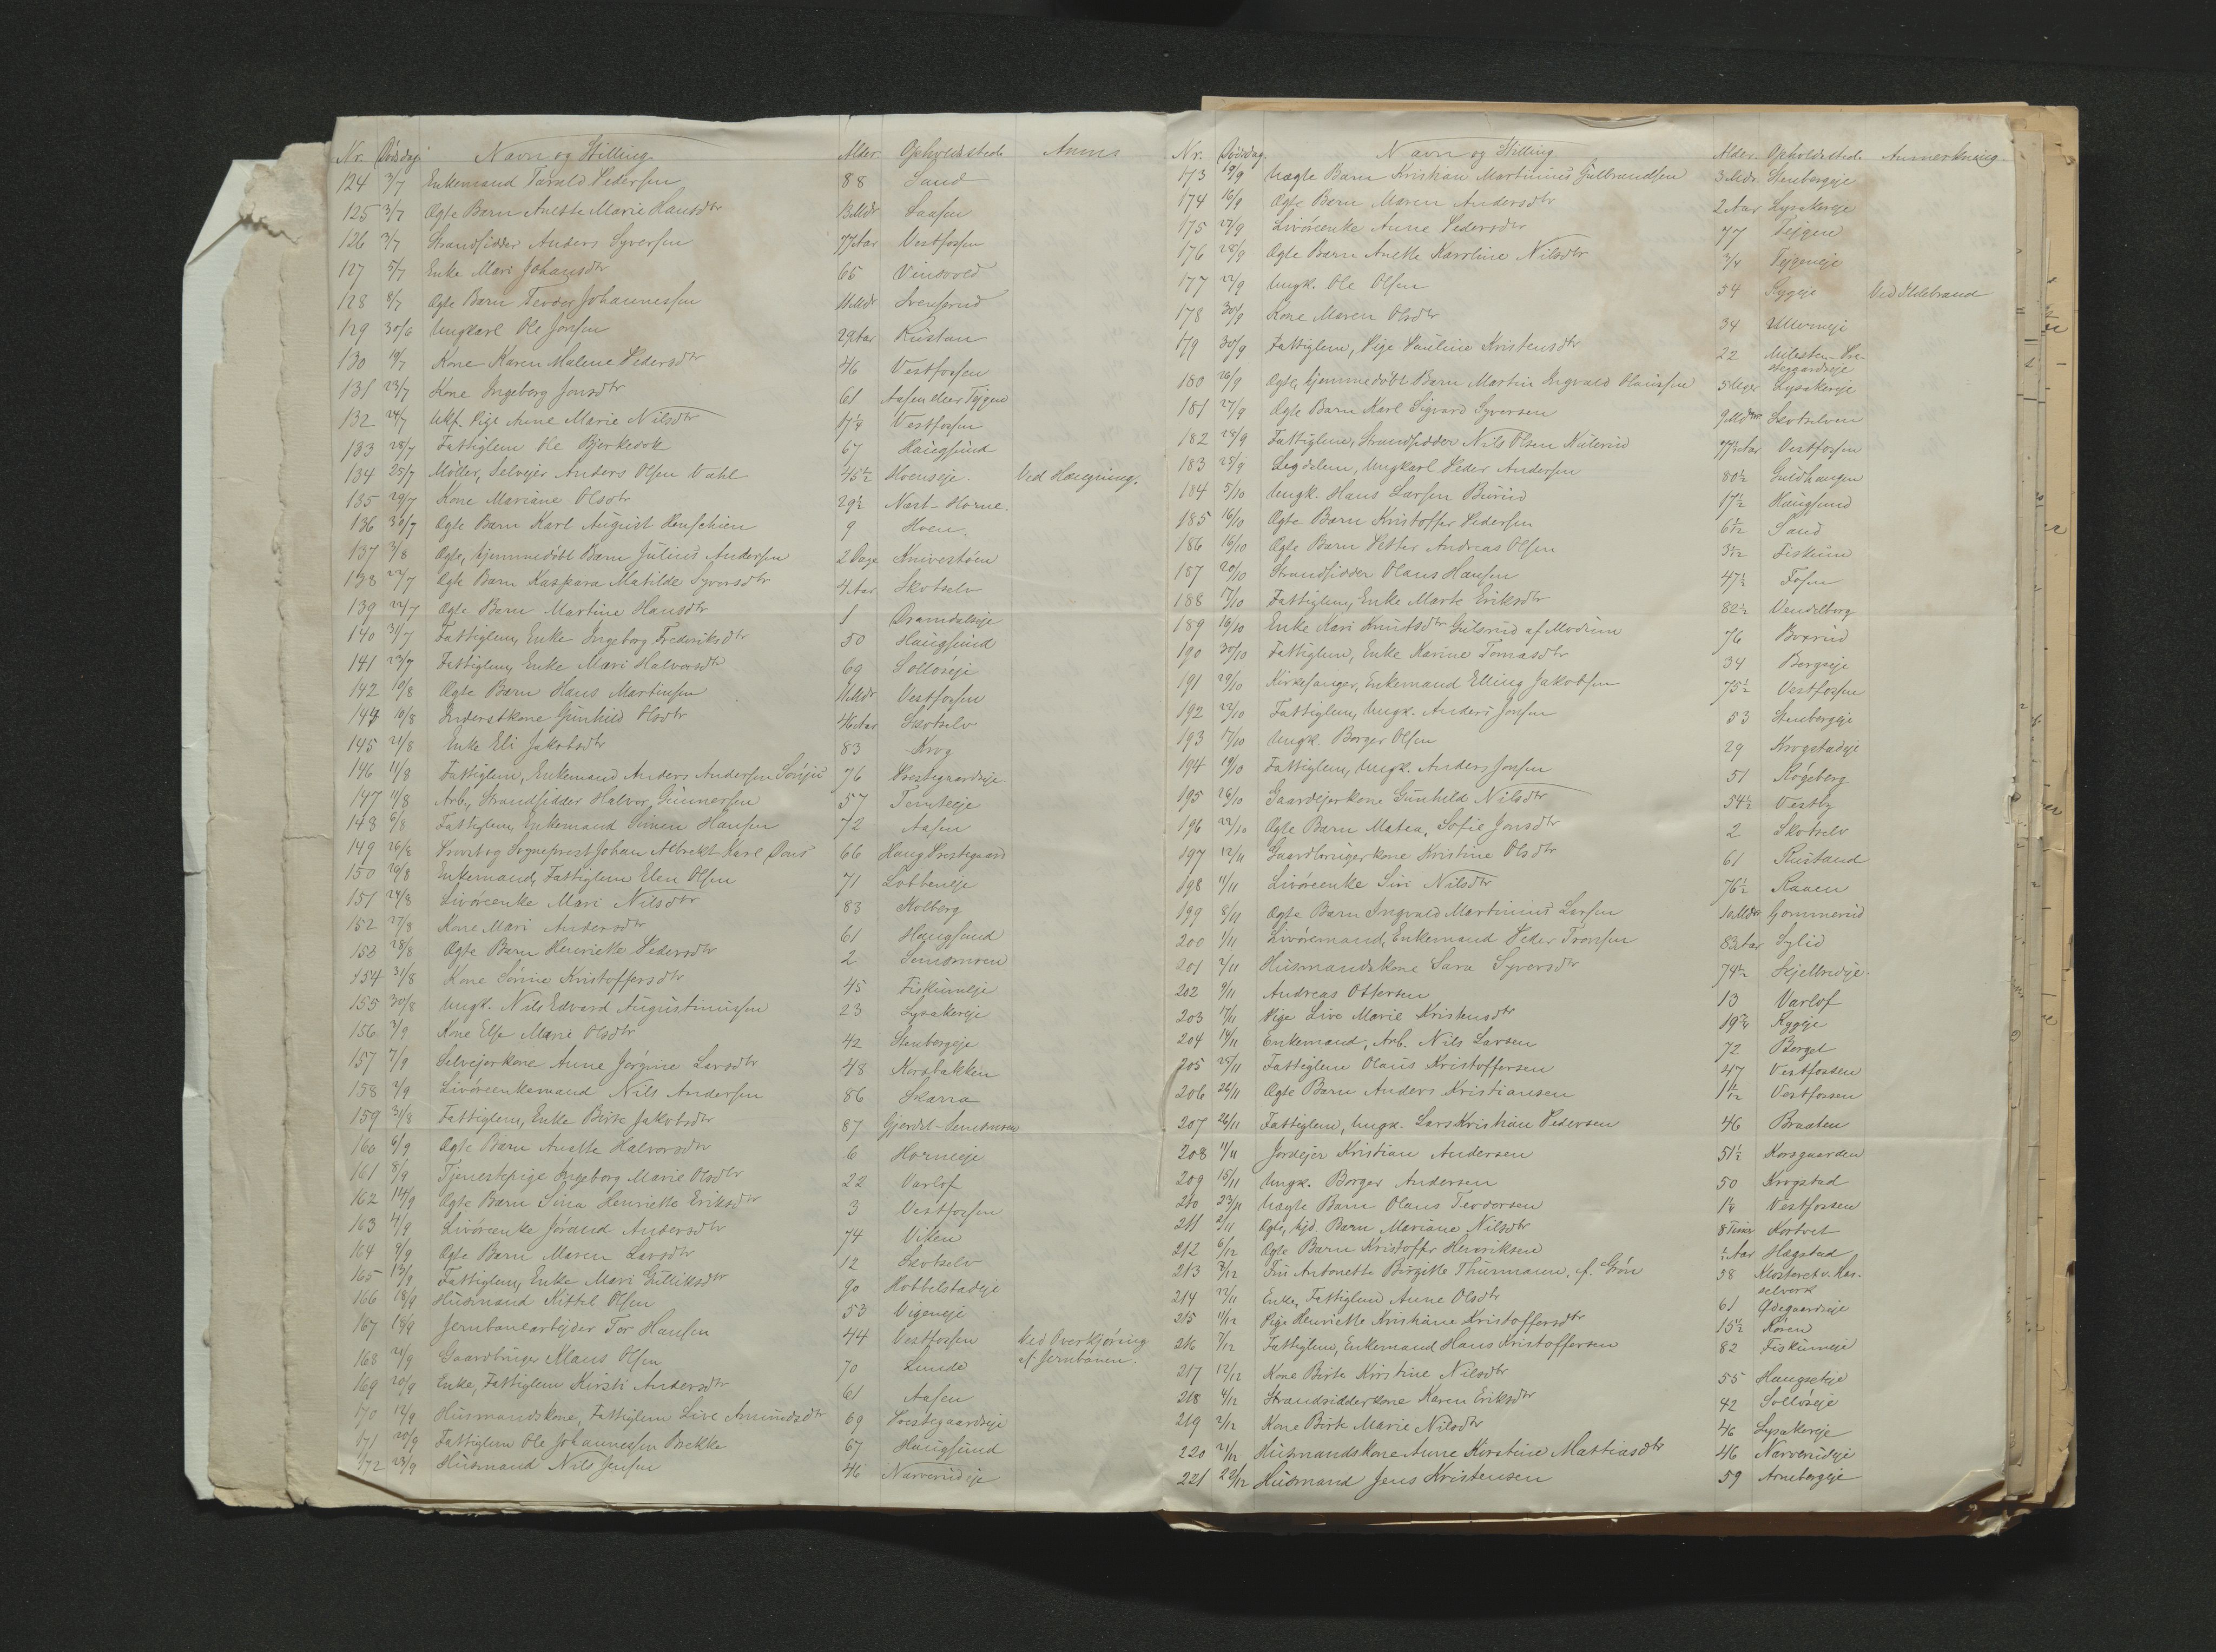 Nr. Dödsdag. Navn og Stilling Alder. Opholdssted Anm.
124 3/7 Enkemand Tarald Pedersen 88 Sand
125 3/7 Ægte Barn Anette Marie Hansdtr 13 Mdr Saasen
126 3/7 Strandsidder Anders Syversen 77 Aar Vestfossen
127 5/7 Enke Mari Johansdtr 65 Vinsvold
128 8/7 Ægte Barn Teodor Johannessen 11 Mdr Svensrud
129 30/6 Ungkarl Ole Jonsen 29 Aar Rustan
130 19/7 Kone Karen Malene Pedersdtr 46 Vestfossen
131 23/7 Kone Ingeborg Jonsdtr 61 Aasen eller Tejgen
132 24/7 Ukf. Pige Anne Marie Nilsdtr 17 1/4 Vestfossen
133 28/7 Fattiglem Ole Bjerkedok 67 Haugsund
134 25/7 Möller, Selvejer Anders Olsen Vahl 45 1/2 Hoenseje. Ved Hængning.
135 29/7 Kone Mariane Olsdtr 29 1/2 Næst-Horne.
136 30/7 Ægte Barn Karl August Henschien 9 Hoen.
137 3/8 Ægte, hjemmedöbt Barn Julius Andersen 2 Dage Knivestöen
138 22/7 Ægte Barn Kaspara Matilde Syversdtr 4 Aar Skotselv
139 22/7 Ægte Barn Martine Hansdtr 1 Dramdalseje
140 31/7 Fattiglem, Enke Ingeborg Frederiksdtr 50 Haugsund
141 23/7 Fattiglem, Enke Mari Halvorsdtr 69 Solloseje
142 10/8 Ægte Barn Hans Martinsen 11 Mdr Vestfossen
144 10/8 Inderstkone Gunhild Olsdtr 46 Aar Skotselv
145 21/8 Enke Eli Jakobsdtr 83 Krog
146 11/8 Fattiglem, Enkemand Anders Andersen Sönju 76 Prestegaardseje.
147 11/8 Arb., Strandsidder Halvor Gunnersen 57 Temteeje
148 6/8 Fattiglem, Enkemand Simen Hansen 72 Aasen
149 26/8 Provst og Sogneprest Johan Albrekt Karl Dons 66 Haug Prestegaard
150 26/8 Enkemand, Fattiglem Elen Olsen 71 Lobbeneje
151 24/8 Livöreenke Mari Nilsdtr 83 Kolberg
152 27/8 Kone Mari Andersdtr 61 Haugsund
153 28/8 Ægte Barn Henriette Pedersdtr 2 Semsmoen
154 31/8 Kone Sörine Kristoffersdtr 45 Fiskumeje
155 30/8 Ungk. Nils Edvard Augustinussen 23 Lysakereje
156 3/9 Kone Else Marie Olsdtr 42 Stenbergeje
157 7/9 Selvejerkone Anne Jörgine Larsdtr 48 Korsbakken
158 3/9 Livöreenkemand Nils Andersen 86 Skarra
159 31/8 Fattiglem, Enke Birte Jakobsdtr 87 Gjerdet-Semsmoen
160 6/9 Ægte Barn Anette Halvorsdtr 6 Horneeje
161 8/9 Tjenestepige Ingeborg Marie Olsdtr 22 Varlof
162 14/9 Ægte Barn Lina Henriette Eriksdtr 3 Vestfossen
163 4/9 Livöreenke Jörand Andersdtr 74 Viken
164 9/9 Ægte Barn Maren Larsdtr 12 Skotselv
165 13/9 Fattiglem, Enke Mari Gulliksdtr 90 Hobbelstadeje
166 18/9 Husmand Kittil Olsen 53 Vegeneje
167 18/9 Jernbanearbejder Tor Hansen 44 Vestfossen Ved Overkjöring af Jernbanen.
168 21/9 Gaardbruger Klaus Olsen 70 Lunde
169 20/9 Enke, Fattiglem Kirsti Andersdtr 61 Aasen
170 12/9 Husmandskone, Fattiglem Live Amundsdtr 69 Prestegaardseje
171 20/9 Fattiglem Ole Johannessen Brekke 67 Haugsund
172 23/9 Husmand Nils Jensen 46 Narverudeje
Nr. Dödsdag. Navn og Stilling Alder. Opholdssted Anmerkning
173 19/9 Uægte Barn Kristian Martinius Gulbrandsen 3 Mdr. Stenbergeje
174 16/9 Ægte Barn Maren Andersdtr 2 Aar Lysakereje
175 27/9 Livöreenke Anne Pedersdtr 77 Tejgen
176 28/9 Ægte Barn Anette Karoline Nilsdtr 3/4 Tejgeneje
177 22/9 Ungk. Ole Olsen 54 Ryggeje Ved Ildebrand
178 30/9 Kone Maren Olsdtr 34 Ullerneje
179 30/9 Fattiglem, Pige Pauline Kristensdtr 22 Milesten-Prestegaardseje
180 26/9 Ægte, hjemmedöbt Barn Martin Ingvald Olaussen 5 Uger Lysakereje
181 27/9 Ægte Barn Karl Sigvard Syversen 9 Mdr Skotselven
182 28/9 Fattiglem, Strandsidder Nils Olsen Hulerud 77 1/2 Aar Vestfossen
183 25/9 Legdslem, Ungkarl Peder Andersen 80 1/2 Guldhaugen
184 5/10 Ungk. Hans Larsen Burud 17 1/2 Haugsund
185 16/10 Ægte Barn Kristoffer Pedersen 6 1/2 Sand
186 16/10 Ægte Barn Petter Andreas Olsen 3 1/12 Fiskum
187 20/10 Strandsidder Olaus Hansen 47 1/2 Fosen
188 17/10 Fattiglem, Enke Marte Eriksdtr 82 1/2 Vendelborg
189 16/10 Enke Kari Knutsdtr Gulsrud af Modum 76 Boxrud
190 25/10 Fattiglem, Enke Karine Tomasdtr 34 Bergseje
191 29/10 Kirkesanger, Enkemand Elling Jakobsen 75 1/2 Vestfossen
192 22/10 Fattiglem, Ungk. Anders Jonsen 53 Stenbergeje
193 17/10 Ungk. Borger Olsen 29 Krogstadeje
194 19/10 Fattiglem, Ungk. Anders Jonsen 51 Rögeberg
195 26/10 Gaardejerkone Gunhild Nilsdtr 54 1/2 Vestby
196 22/10 Ægte Barn Matea, Sofie Jonsdtr 2 Skotselv
197 12/11 Gaardbrugerkone Kristine Olsdtr 61 Rustand
198 11/11 Livöreenke Siri Nilsdtr 76 1/2 Raaen
199 8/11 Ægte Barn Ingvald Martinius Larsen 10 Mdr Gommerud
200 1/11 Livöremand, Enkemand Peder Tronsen 83 Aar Lylid
201 2/11 Husmandskone Sara Syversdtr 74 1/2 Skjelbredeje.
202 9/11 Andreas Ottersen 13 Varlof
203 17/11 Pige Live Marie Kristensdtr 19 3/4 Ryggeje
204 14/11 Enkemand, Arb. Nils Larsen 72 Berget
205 25/11 Fattiglem Olaus Kristoffersen 47 Vestfossen
206 26/11 Ægte Barn Anders Kristiansen 1 1/12 Vestfossen
207 26/11 Fattiglem, Ungk. Lars Kristian Pedersen 46 Braaten
208 11/11 Jordejer Kristian Andersen 51 1/2 Korsgaarden
209 15/11 Ungk. Borger Andersen 50 Krogstad
210 23/11 Uægte Barn Olaus Teodorsen Vestfossen
211 2/11 Ægte, hjd. Barn Mariane Nilsdtr 8 Timer Kortvet
212 6/12 Ægte Barn Kristoffer Henriksen Aar Hagstad
213 3/12 Fru Antonette Birgitte Thurmann, f. Grön 58 Klosteret v. Hasselverk
214 22/11 Enke, Fattiglem Anne Olsdtr 61 Ødegaardseje
215 11/12 Pige Henriette Kristiane Kristoffersdtr 15 1/2 Rören
216 7/12 Fattiglem, Enkemand Hans Kristoffersen 82 Fiskumeje
217 12/12 Kone Birte Kirstine Nilsdtr 55 Haugseteje
218 4/12 Strandsidderkone Karen Eriksdtr 42 Solloseje
219 2/12 Kone Birte Marie Nilsdtr 46 Lysakereje
220 21/12 Husmandskone Anne Kirstine Mattiasdtr 46 Narverudeje
221 22/12 Husmand Jens Kristensen 59 Arnebergeje